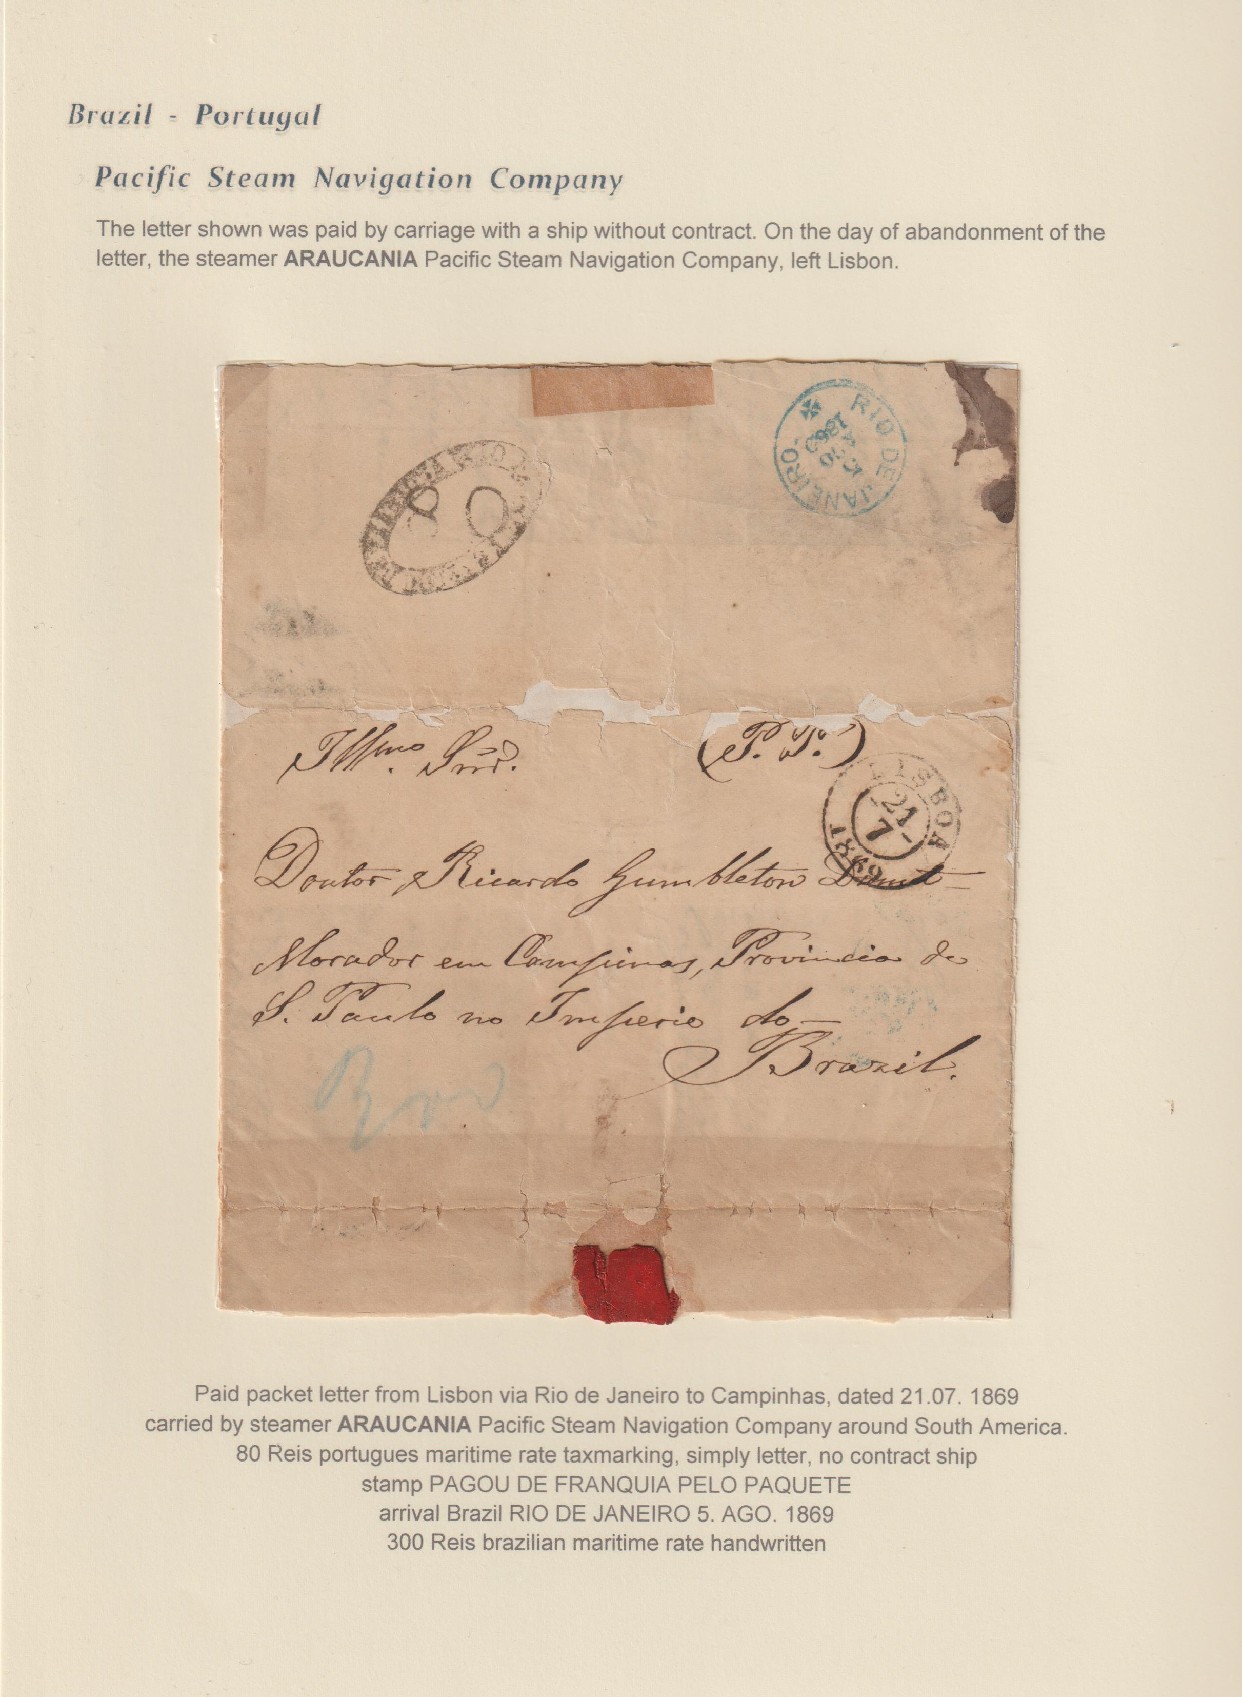 Brazil - Portugal
Pacific Steam Navigation Company
The letter shown was paid by carriage with a ship without contract. On the day of abandonment of the
letter, the steamer ARAUCANIA Pacific Steam Navigation Company, left Lisbon.
RIO DE JANEIRO
1869
80
Illmo. Snr.
(P. P.)
LISBOA
21
7
1869
Doutor Ricardo Gumbleton Daunt
Morador em Campinas, Provincia de
S. Paulo no Imperio do
Brazil.
300
Paid packet letter from Lisbon via Rio de Janeiro to Campinhas, dated 21.07. 1869
carried by steamer ARAUCANIA Pacific Steam Navigation Company around South America.
80 Reis portugues maritime rate taxmarking, simply letter, no contract ship
stamp PAGOU DE FRANQUIA PELO PAQUETE
arrival Brazil RIO DE JANEIRO 5. AGO. 1869
300 Reis brazilian maritime rate handwritten